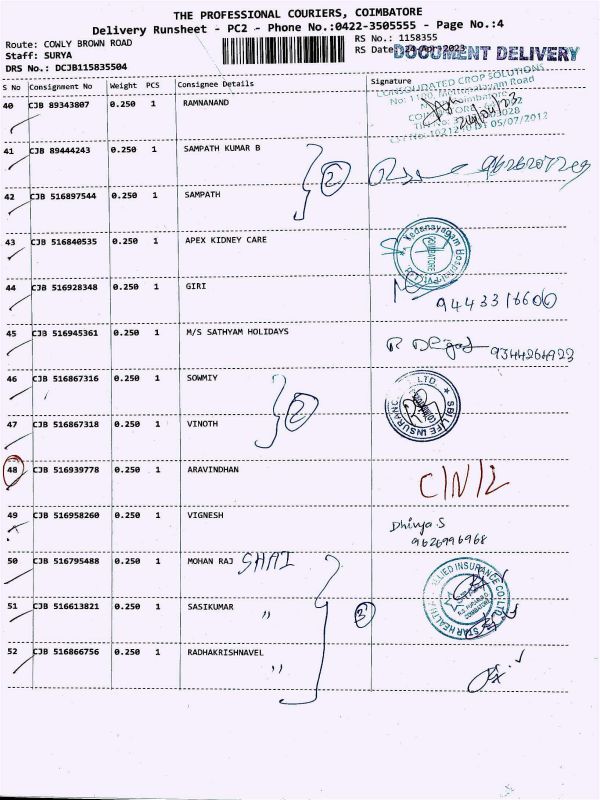 THE PROFESSIONAL COURIERS, COIMBATORE
Delivery Runsheet - PC2 - Phone No.:0422-3505555 - Page No.:4
Route: COWLY BROWN ROAD RS No.: 1158355
Staff: SURYA RS Date: 24-Apr-2023
DOCUMENT DELIVERY
DRS No.: DCJB115835504
S No Consignment No Weight PCS Consignee Details Signature
CONSOLIDATED CROP SOLUTIONS
40 CJB 89343807 0.250 1 RAMNANAND
24/04/23
05/07/2012
41 CJB 89444243 0.250 1 SAMPATH KUMAR B
2
42 CJB 516897544 0.250 1 SAMPATH
43 CJB 516840535 0.250 1 APEX KIDNEY CARE
Vedanayagam Hospital
COIMBATORE
44 CJB 516928348 0.250 1 GIRI
9443316600
45 CJB 516945361 0.250 1 M/S SATHYAM HOLIDAYS
9344264923
46 CJB 516867316 0.250 1 SOWMIY
2
SBI LIFE INSURANCE CO. LTD.
47 CJB 516867318 0.250 1 VINOTH
48 CJB 516939778 0.250 1 ARAVINDHAN
C/N/L
49 CJB 516958260 0.250 1 VIGNESH
Dhivya S
9626996968
50 CJB 516795488 0.250 1 MOHAN RAJ SHAI
STAR HEALTH & ALLIED INSURANCE CO. LTD.
51 CJB 516613821 0.250 1 SASIKUMAR "
3
52 CJB 516866756 0.250 1 RADHAKRISHNAVEL "